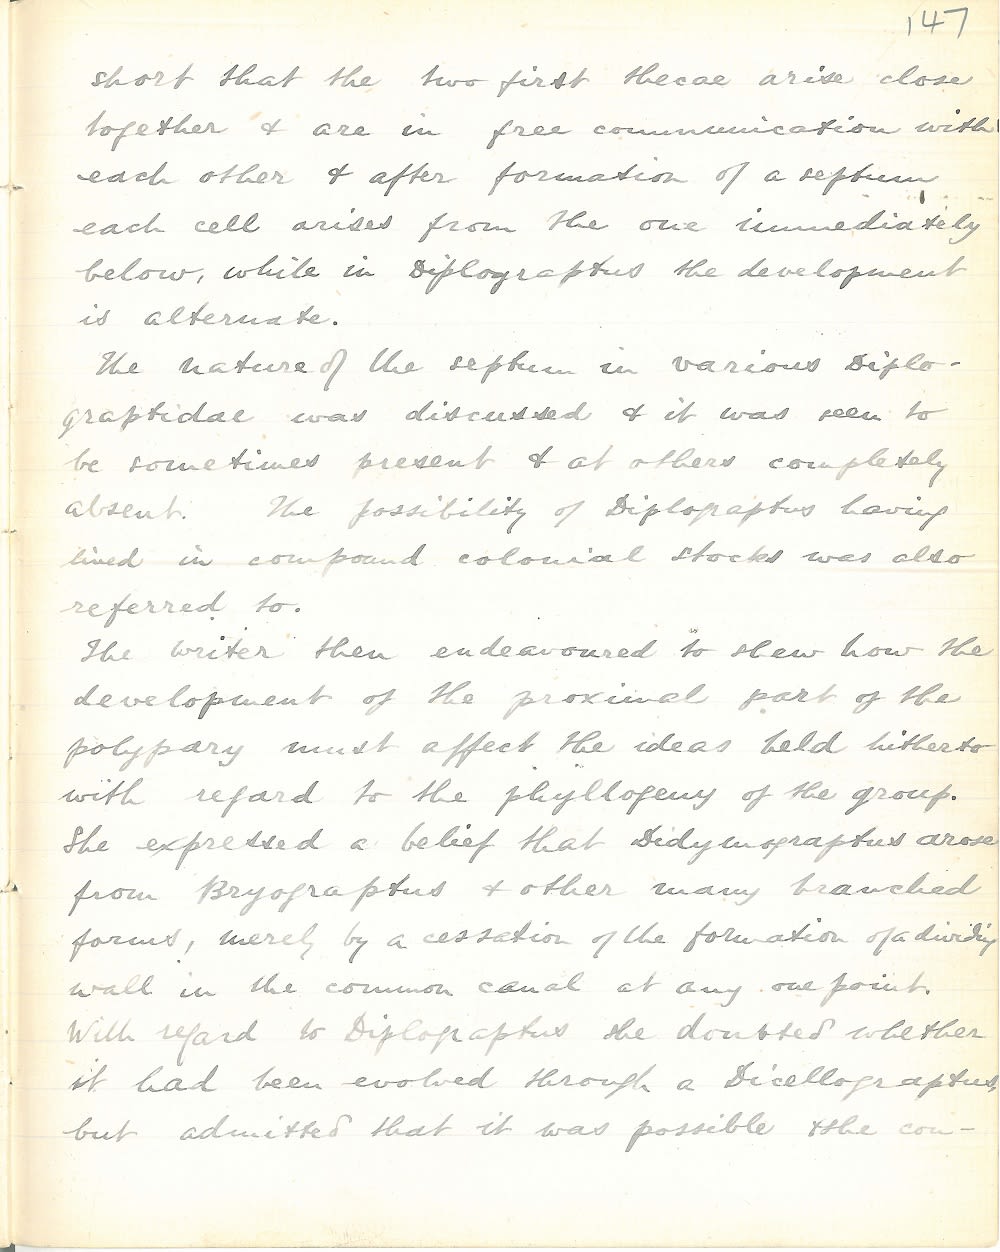 147
short that the two first thecae arise close
together & are in free communication with
each other & after formation of a septum
each cell arises from the one immediately
below, while in Diplograptus the development
is alternate.
The nature of the septum in various Diplo-
graptidae was discussed & it was seen to
be sometimes present & at others completely
absent. The possibility of Diplograptus having
lived in compound colonial stocks was also
referred to.
The writer then endeavoured to shew how the
development of the proximal part of the
polypary must affect the ideas held hitherto
with regard to the phyllogeny of the group.
She expressed a belief that Didymograptus arose
from Bryograptus & other many branched
forms, merely by a cessation of the formation of a dividing
wall in the common canal at any one point.
With regard to Diplograptus she doubted whether
it had been evolved through a Dicellograptus,
but admitted that it was possible & the con-